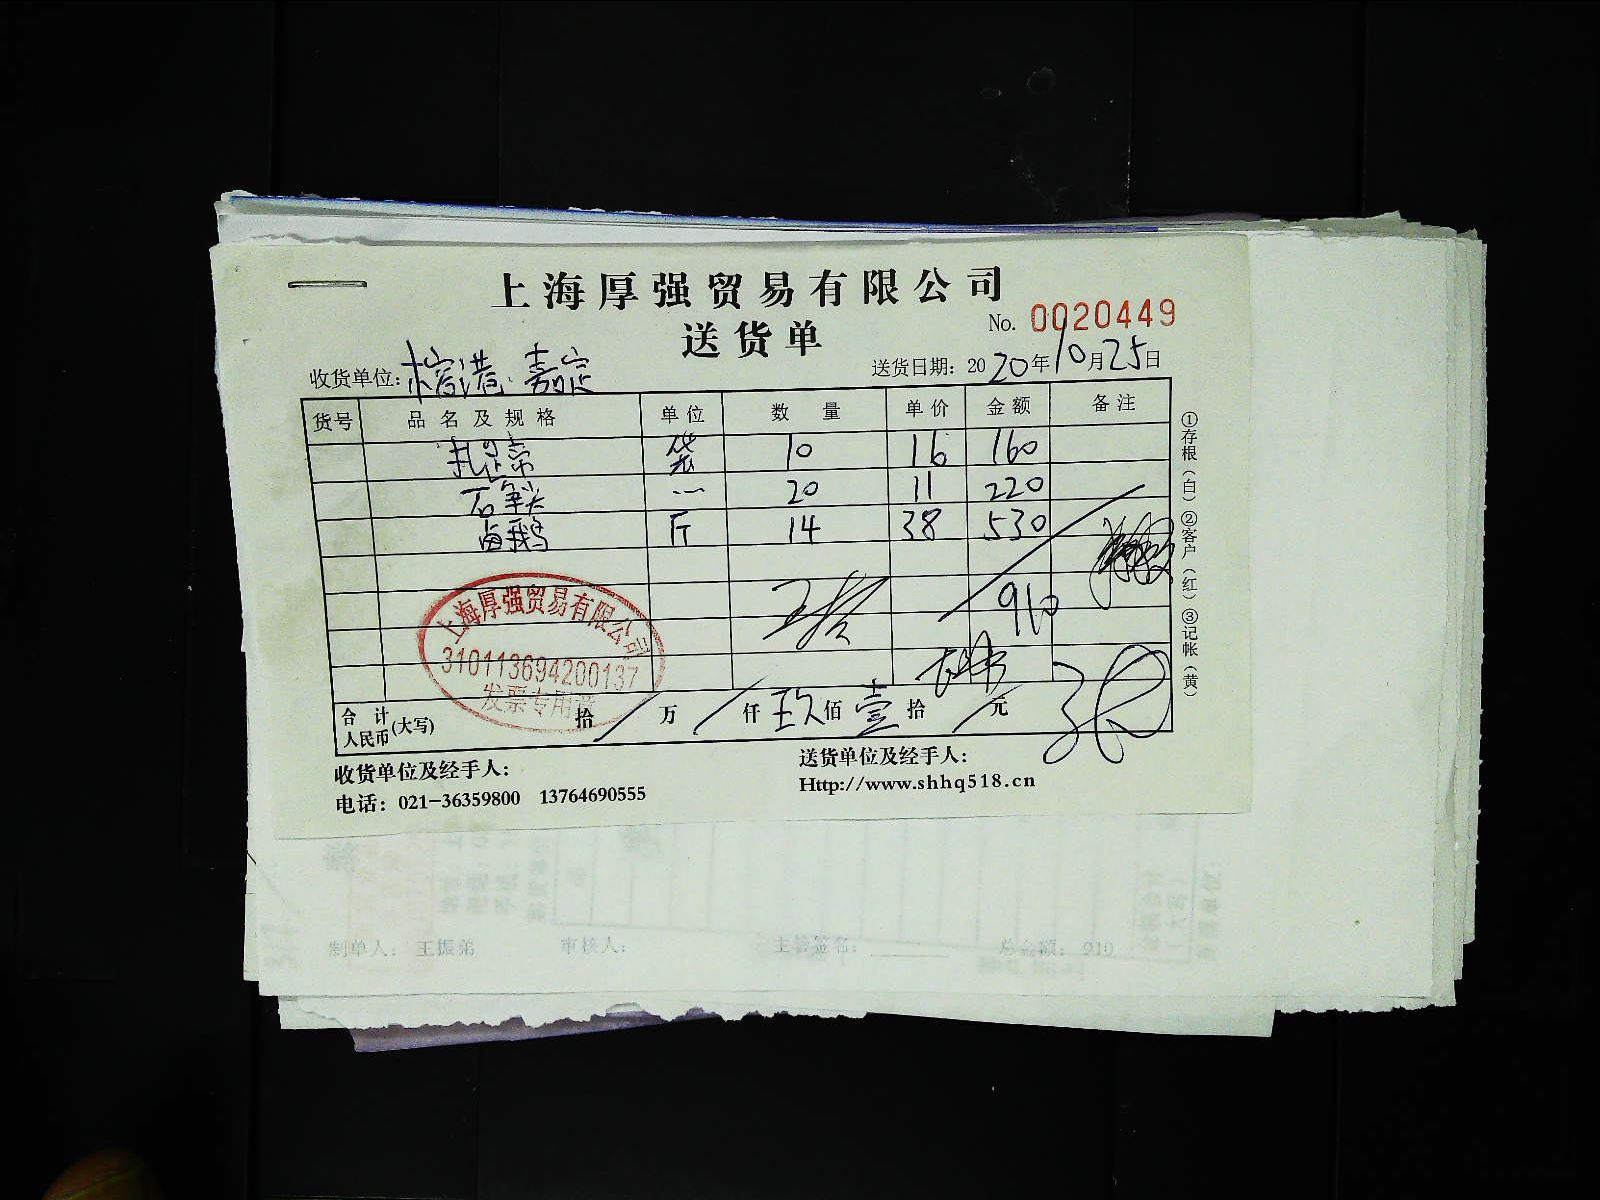 上海厚强贸易有限公司
送货单
No. 0020449
收货单位: 榕港 嘉定
送货日期: 2020年10月25日
货号 品名及规格 单位 数量 单价 金额 备注
袋 10 16 160
20 11 220
卤鹅 斤 14 38 530
910
上海厚强贸易有限公司
310113694200137
发票专用章
合计人民币(大写) 拾 万 仟 玖佰壹拾 元
①存根(白)②客户(红)③记帐(黄)
收货单位及经手人:
送货单位及经手人:
电话: 021-36359800 13764690555
Http://www.shhq518.cn
制单人: 王振弟 审核人: 主管签名: 总金额: 910